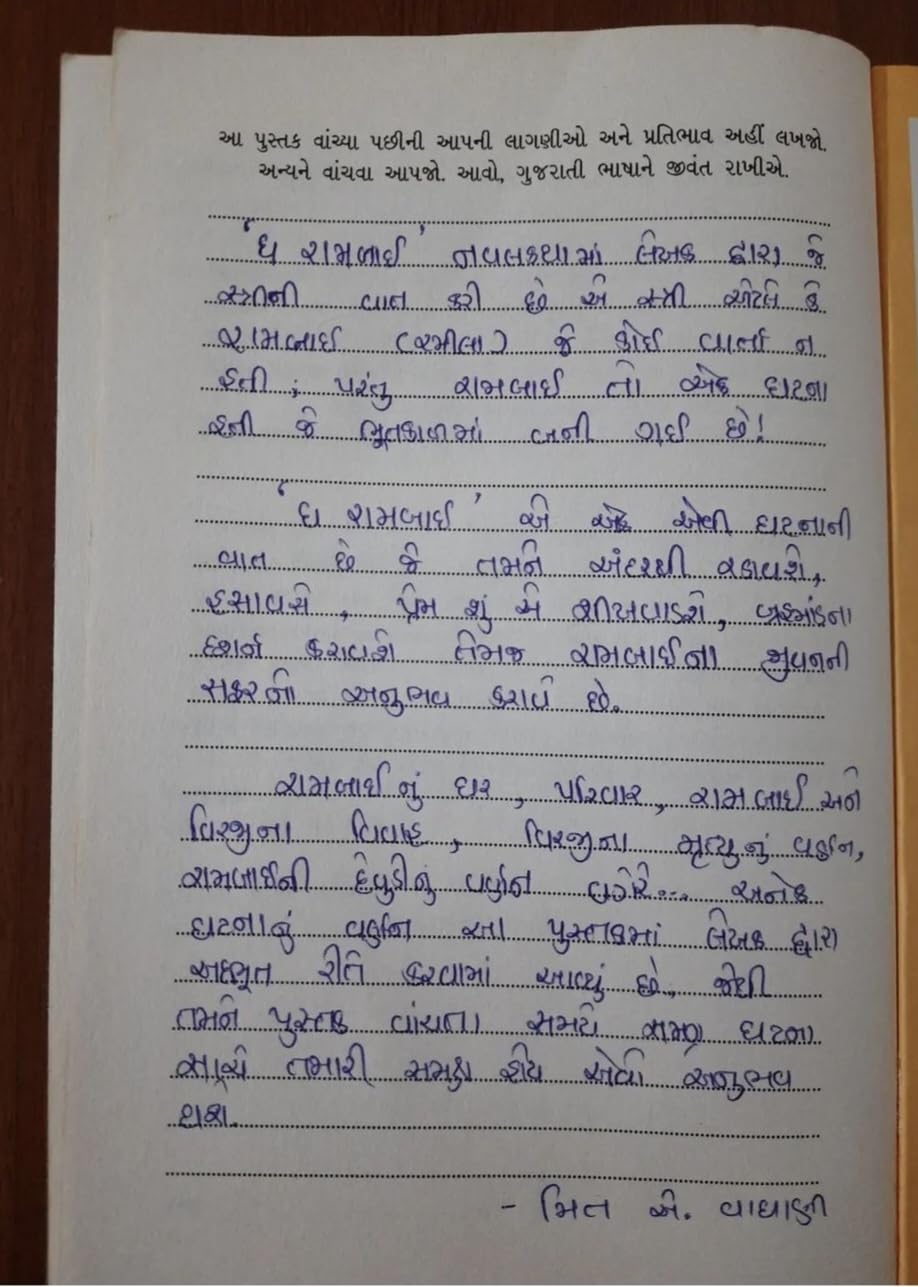 આ પુસ્તક વાંચ્યા પછીની આપની લાગણીઓ અને પ્રતિભાવ અહીં લખજો.
અન્યને વાંચવા આપજો. આવો, ગુજરાતી ભાષાને જીવંત રાખીએ.
'ધ રામબાઈ' નવલકથામાં લેખક દ્વારા જે
સ્ત્રીની વાત કરી છે એ સ્ત્રી એટલે કે
રામબાઈ (રમીલા) જે કોઈ વાર્તા ન
હતી ; પરંતુ રામબાઈ તો એક ઘટના
હતી જે ભૂતકાળમાં બની ગઈ છે!
'ધ રામબાઈ' એ એક એવી ઘટનાની
વાત છે જે તમને અંદરથી રડાવશે,
હસાવશે, પ્રેમ શું એ શીખવાડશે, બ્રહ્માંડના
દર્શન કરાવશે તેમજ રામબાઈના જીવનની
સફરનો અનુભવ કરાવે છે.
રામબાઈનું ઘર, પરિવાર, રામબાઈ અને
વિરજીના વિવાહ, વિરજીના મૃત્યુનું વર્ણન,
રામબાઈની દેવુડીનું વર્ણન વગેરે... અનેક
ઘટનાનું વર્ણન આ પુસ્તકમાં લેખક દ્વારા
અદભૂત રીતે કરવામાં આવ્યું છે, જેથી
તમને પુસ્તક વાંચતા સમયે ઘટના
સાચે તમારી સમક્ષ હોય એવો અનુભવ
થશે.
- મિત એ. વાઘાણી